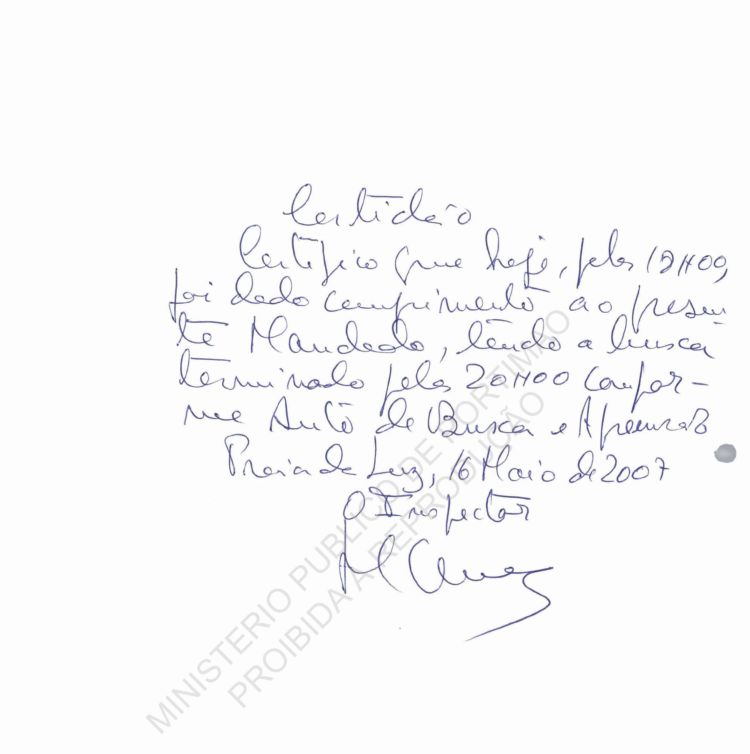 Certidão
Certifico que hoje, pelas 19H00,
foi dado cumprimento ao presen
te Mandado, tendo a busca
terminado pelas 20H00 confor-
me Auto de Busca e Apreensão
Praia da Luz, 16 Maio de 2007
O Inspector
MINISTERIO PUBLICO DE PORTIMÃO
PROIBIDA A REPRODUÇÃO